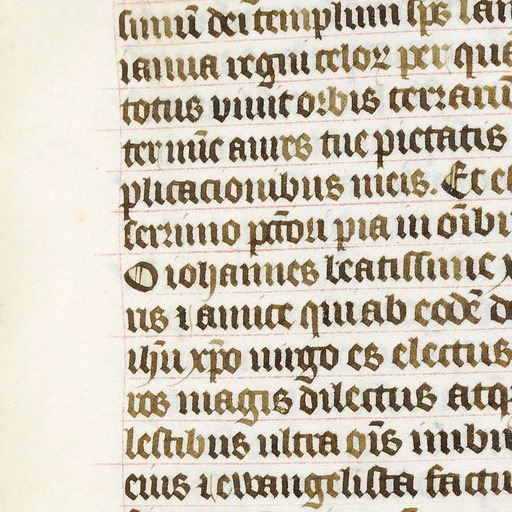 simū dei templum sp̄s san
ianua regni celoꝝ per quā
totus viuit orbis terrarū
ter nūc aures tue pietatis
plicacionibus meis. Et e
serrimo pctōri pia in oību
O iohannes beatissime x
us ⁊ amice qui ab eodē d
ihū xp̄o uirgo es electus
ros magis dilectus atq
lestibus ultra oīs imbu
eius ⁊ ewangelista factu